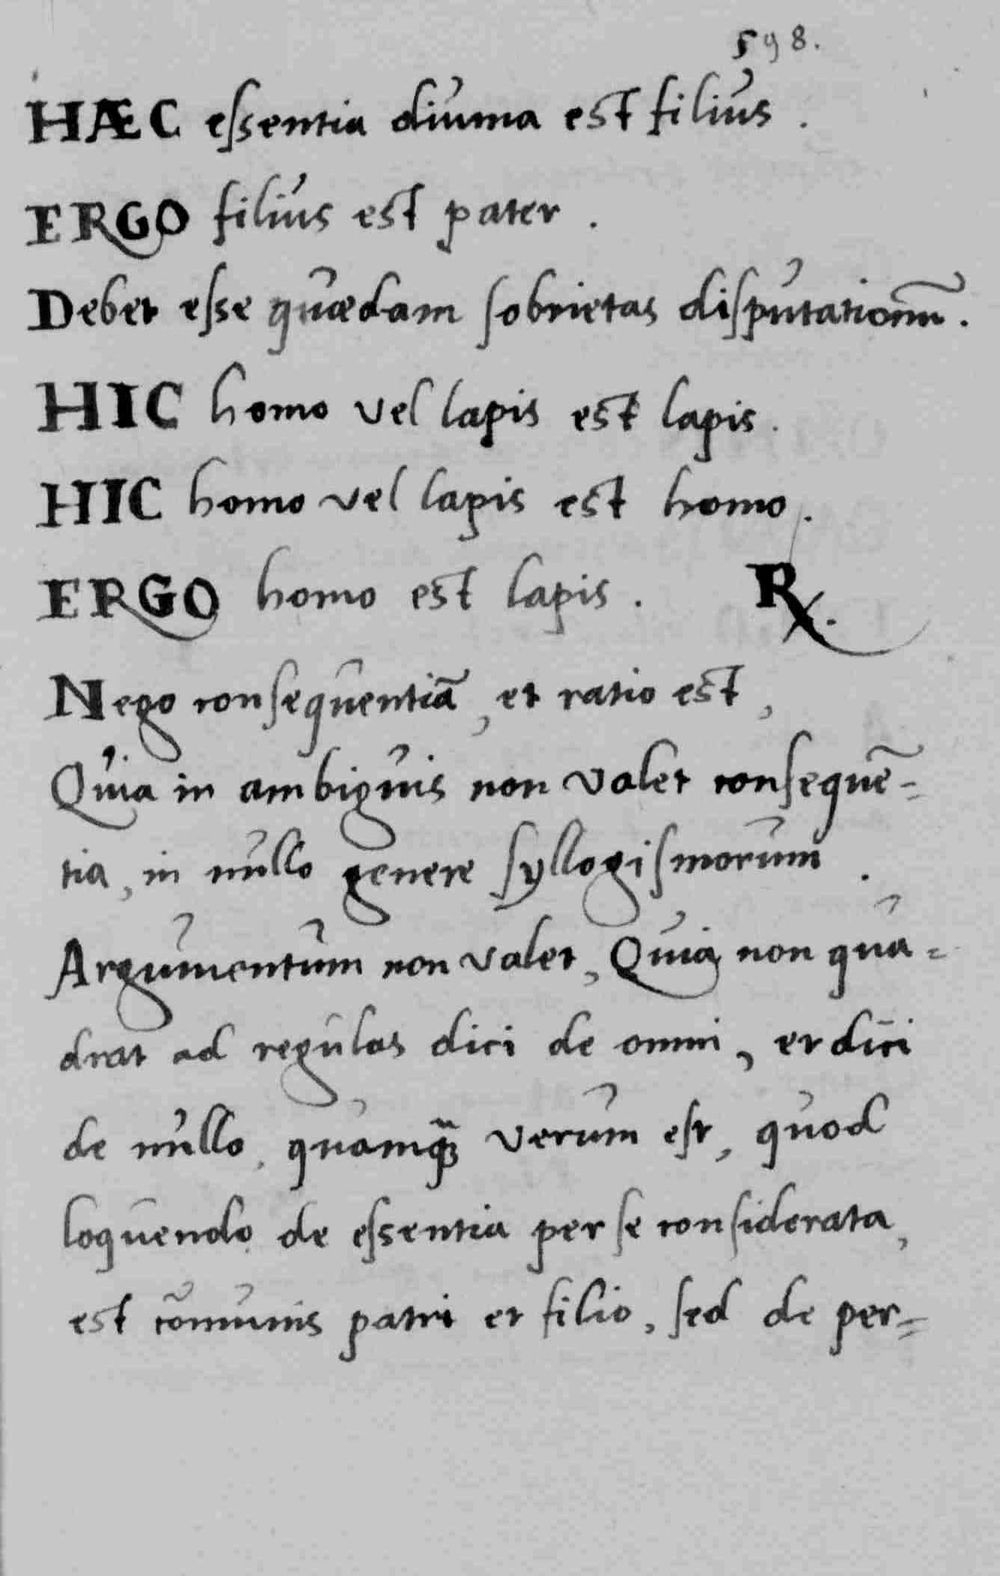 598.
HÆC essentia diuina est filius.
ERGO filius est pater.
Debet esse quædam sobrietas disputationũ.
HIC homo vel lapis est lapis.
HIC homo vel lapis est homo.
ERGO homo est lapis. ℞.
Nego consequentiã, et ratio est,
Quia in ambiguis non valet consequẽ=
tia, in nullo genere syllogismorum.
Argumentum non valet, Quia non qua=
drat ad regulas dici de omni, et dici
de nullo, quamq̃ verum est, quod
loquendo de essentia per se considerata,
est cõmunis patri et filio, sed de per=